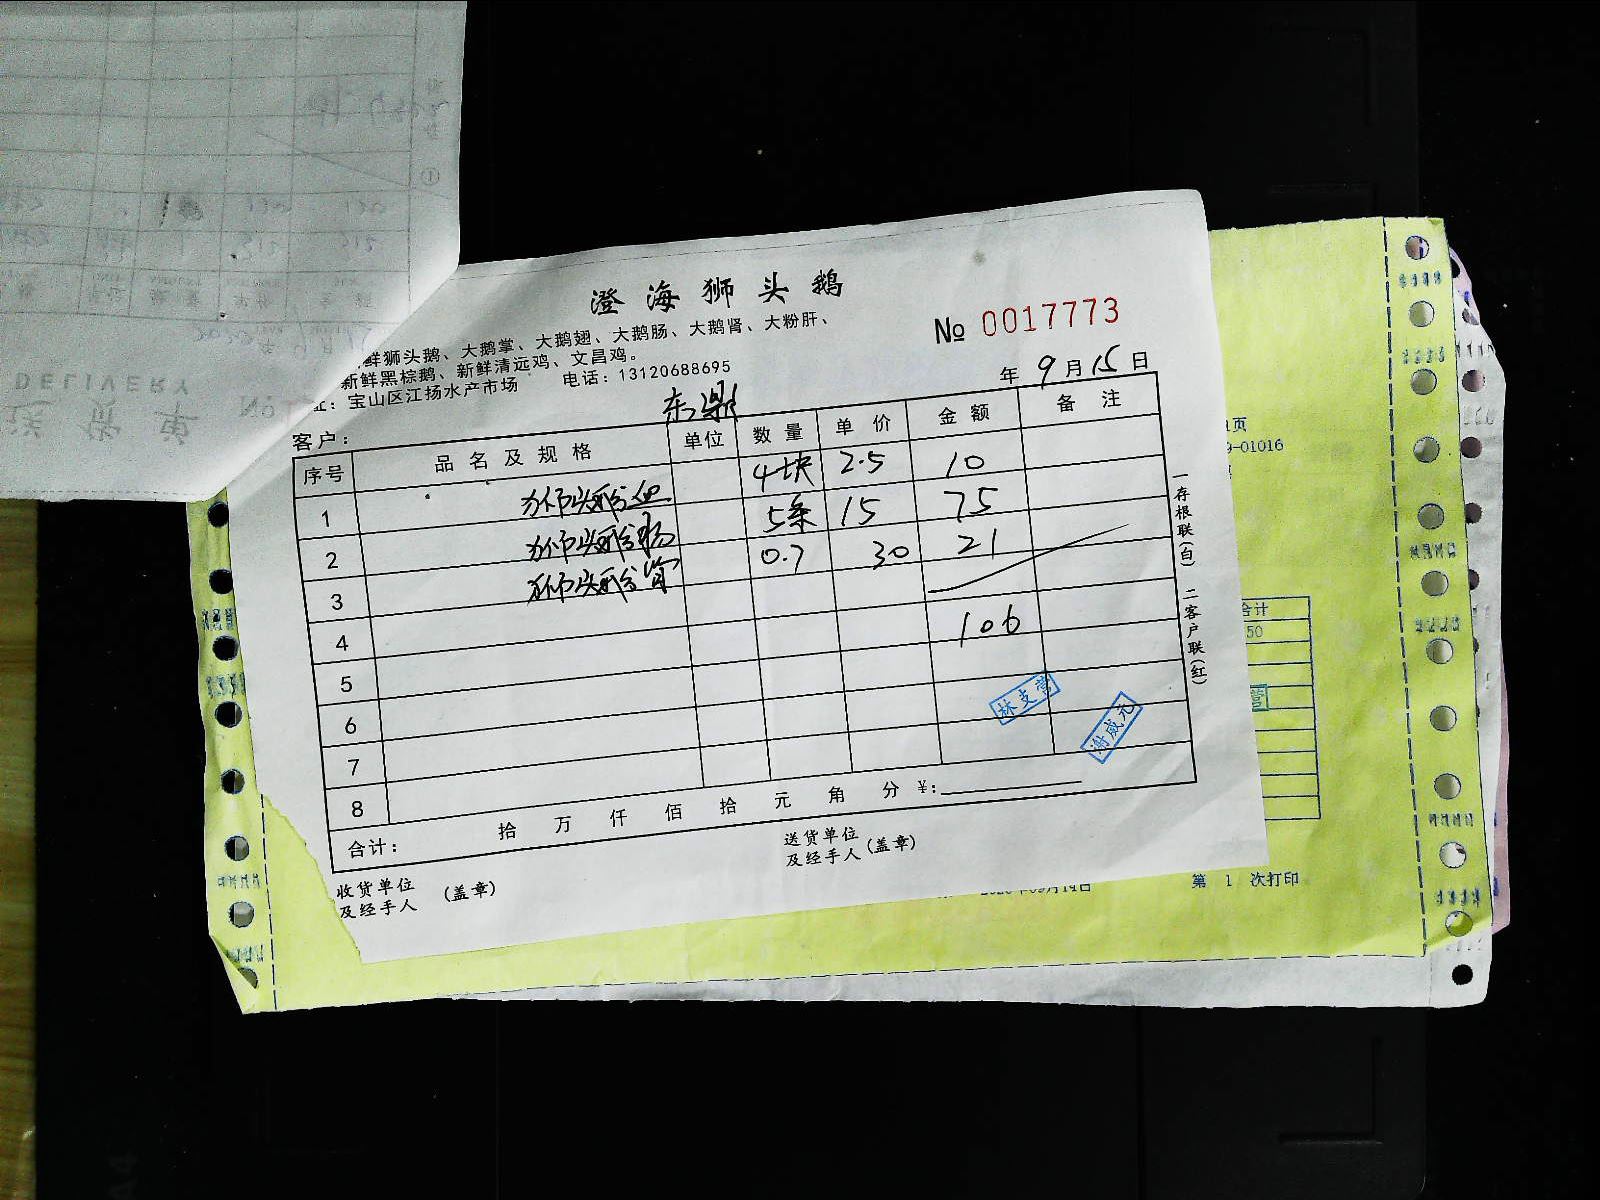 澄海狮头鹅
鲜狮头鹅、大鹅掌、大鹅翅、大鹅肠、大鹅肾、大粉肝、
新鲜黑棕鹅、新鲜清远鸡、文昌鸡。
址：宝山区江扬水产市场 电话：13120688695
№ 0017773
年 9 月 15 日
客户： 东鼎
序号 品名及规格 单位 数量 单价 金额 备注
1 狮头鹅血 4块 2.5 10
2 狮头鹅肠 5条 15 75
3 狮头鹅肾 0.7 30 21
4 106
5
6
7
8
林支营
谢成元
合计： 拾 万 仟 佰 拾 元 角 分 ¥：
收货单位及经手人 （盖章）
送货单位及经手人（盖章）
一存根联（白） 二客户联（红）
页
9-01016
合计
50
第 1 次打印
DELIVERY
送货单 No